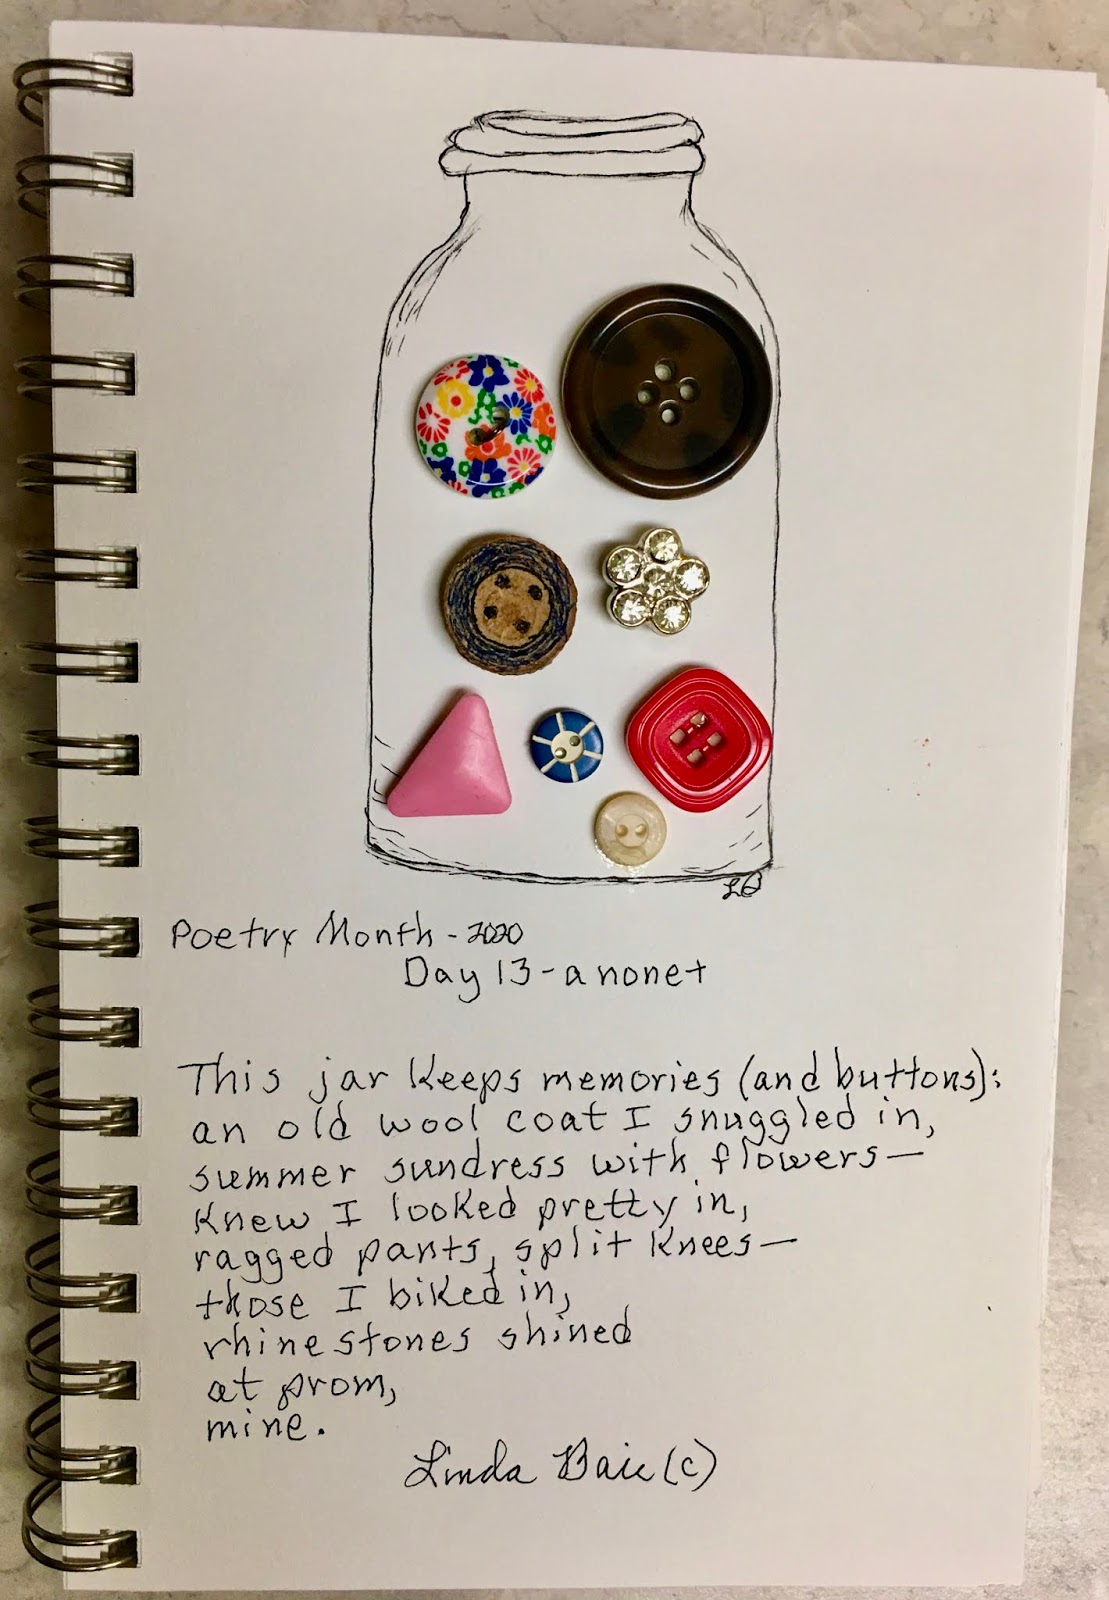 LB
Poetry Month - 2020
Day 13 - a nonet
This jar keeps memories (and buttons):
an old wool coat I snuggled in,
summer sundress with flowers—
knew I looked pretty in,
ragged pants, split knees—
those I biked in,
rhinestones shined
at prom,
mine.
Linda Baie (c)